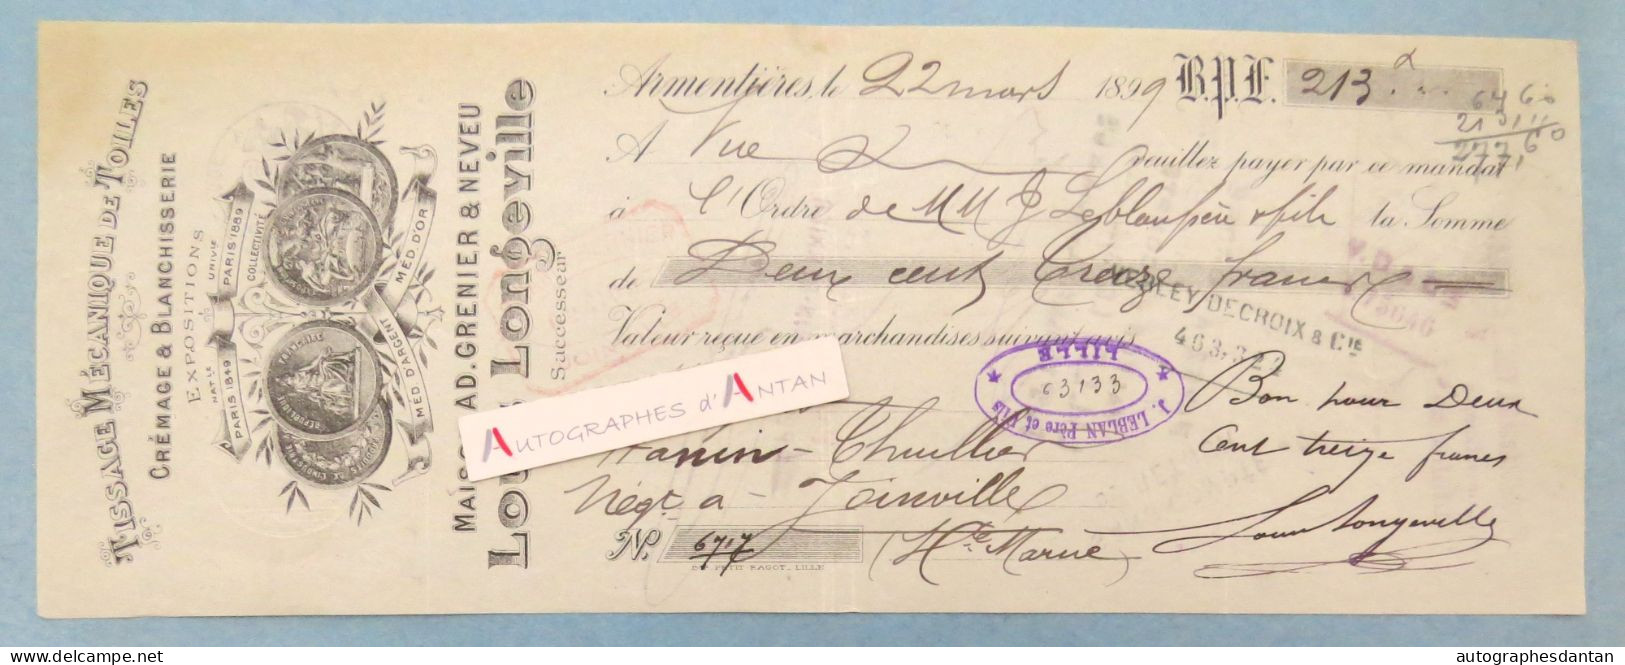 TISSAGE MÉCANIQUE DE TOILES
CRÉMAGE & BLANCHISSERIE
EXPOSITIONS
NATLE UNIVLE
PARIS 1849 PARIS 1889
COLLECTIVITÉ
MED. D'ARGENT MED. D'OR
MAISON AD. GRENIER & NEVEU
Louis Longeville
Successeur
Armentières, le 22 mars 1899 B.P.F. 213
64 60
213
277, 60
A Vue veuillez payer par ce mandat
à l'Ordre de MM J. Leblan père & fils la Somme
de Deux cent treize francs
VERLEY DECROIX & CIE
Valeur reçue en marchandises suivant avis
463,3
LILLE
63133
J. LEBLAN Père et Fils
AUTOGRAPHES d'ANTAN
Bon pour Deux
Cent treize francs
Hanin - Thuillier
Négt à - Joinville
Louis Longeville
No. 6717 (Hte Marne)
DEL PETIT RAGOT_LILLE
delcampe.net
autographesdantan